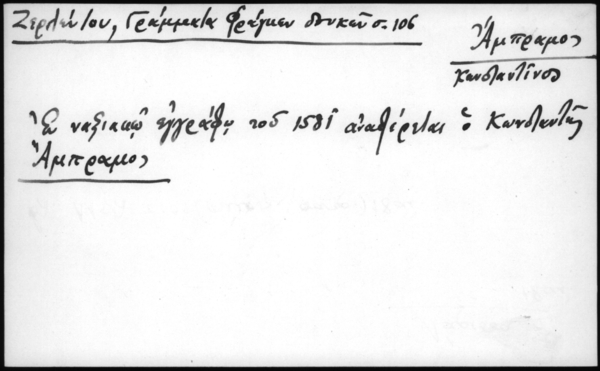 Ζερλέντου, Γράμματα Φράγκων δουκῶν σ. 106
Ἄμπραμος
Κωνσταντῖνος
Ἐν ναξιακῷ ἐγγράφῳ τοῦ 1581 ἀναφέρεται ὁ Κωνσταντῆς
Ἄμπραμος